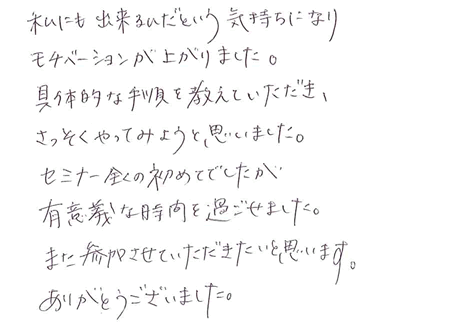 私にも出来るんだという気持ちになり
モチベーションが上がりました。
具体的な手順を教えていただき、
さっそくやってみようと思いました。
セミナー全くの初めてでしたが
有意義な時間を過ごせました。
また参加させていただきたいと思います。
ありがとうございました。